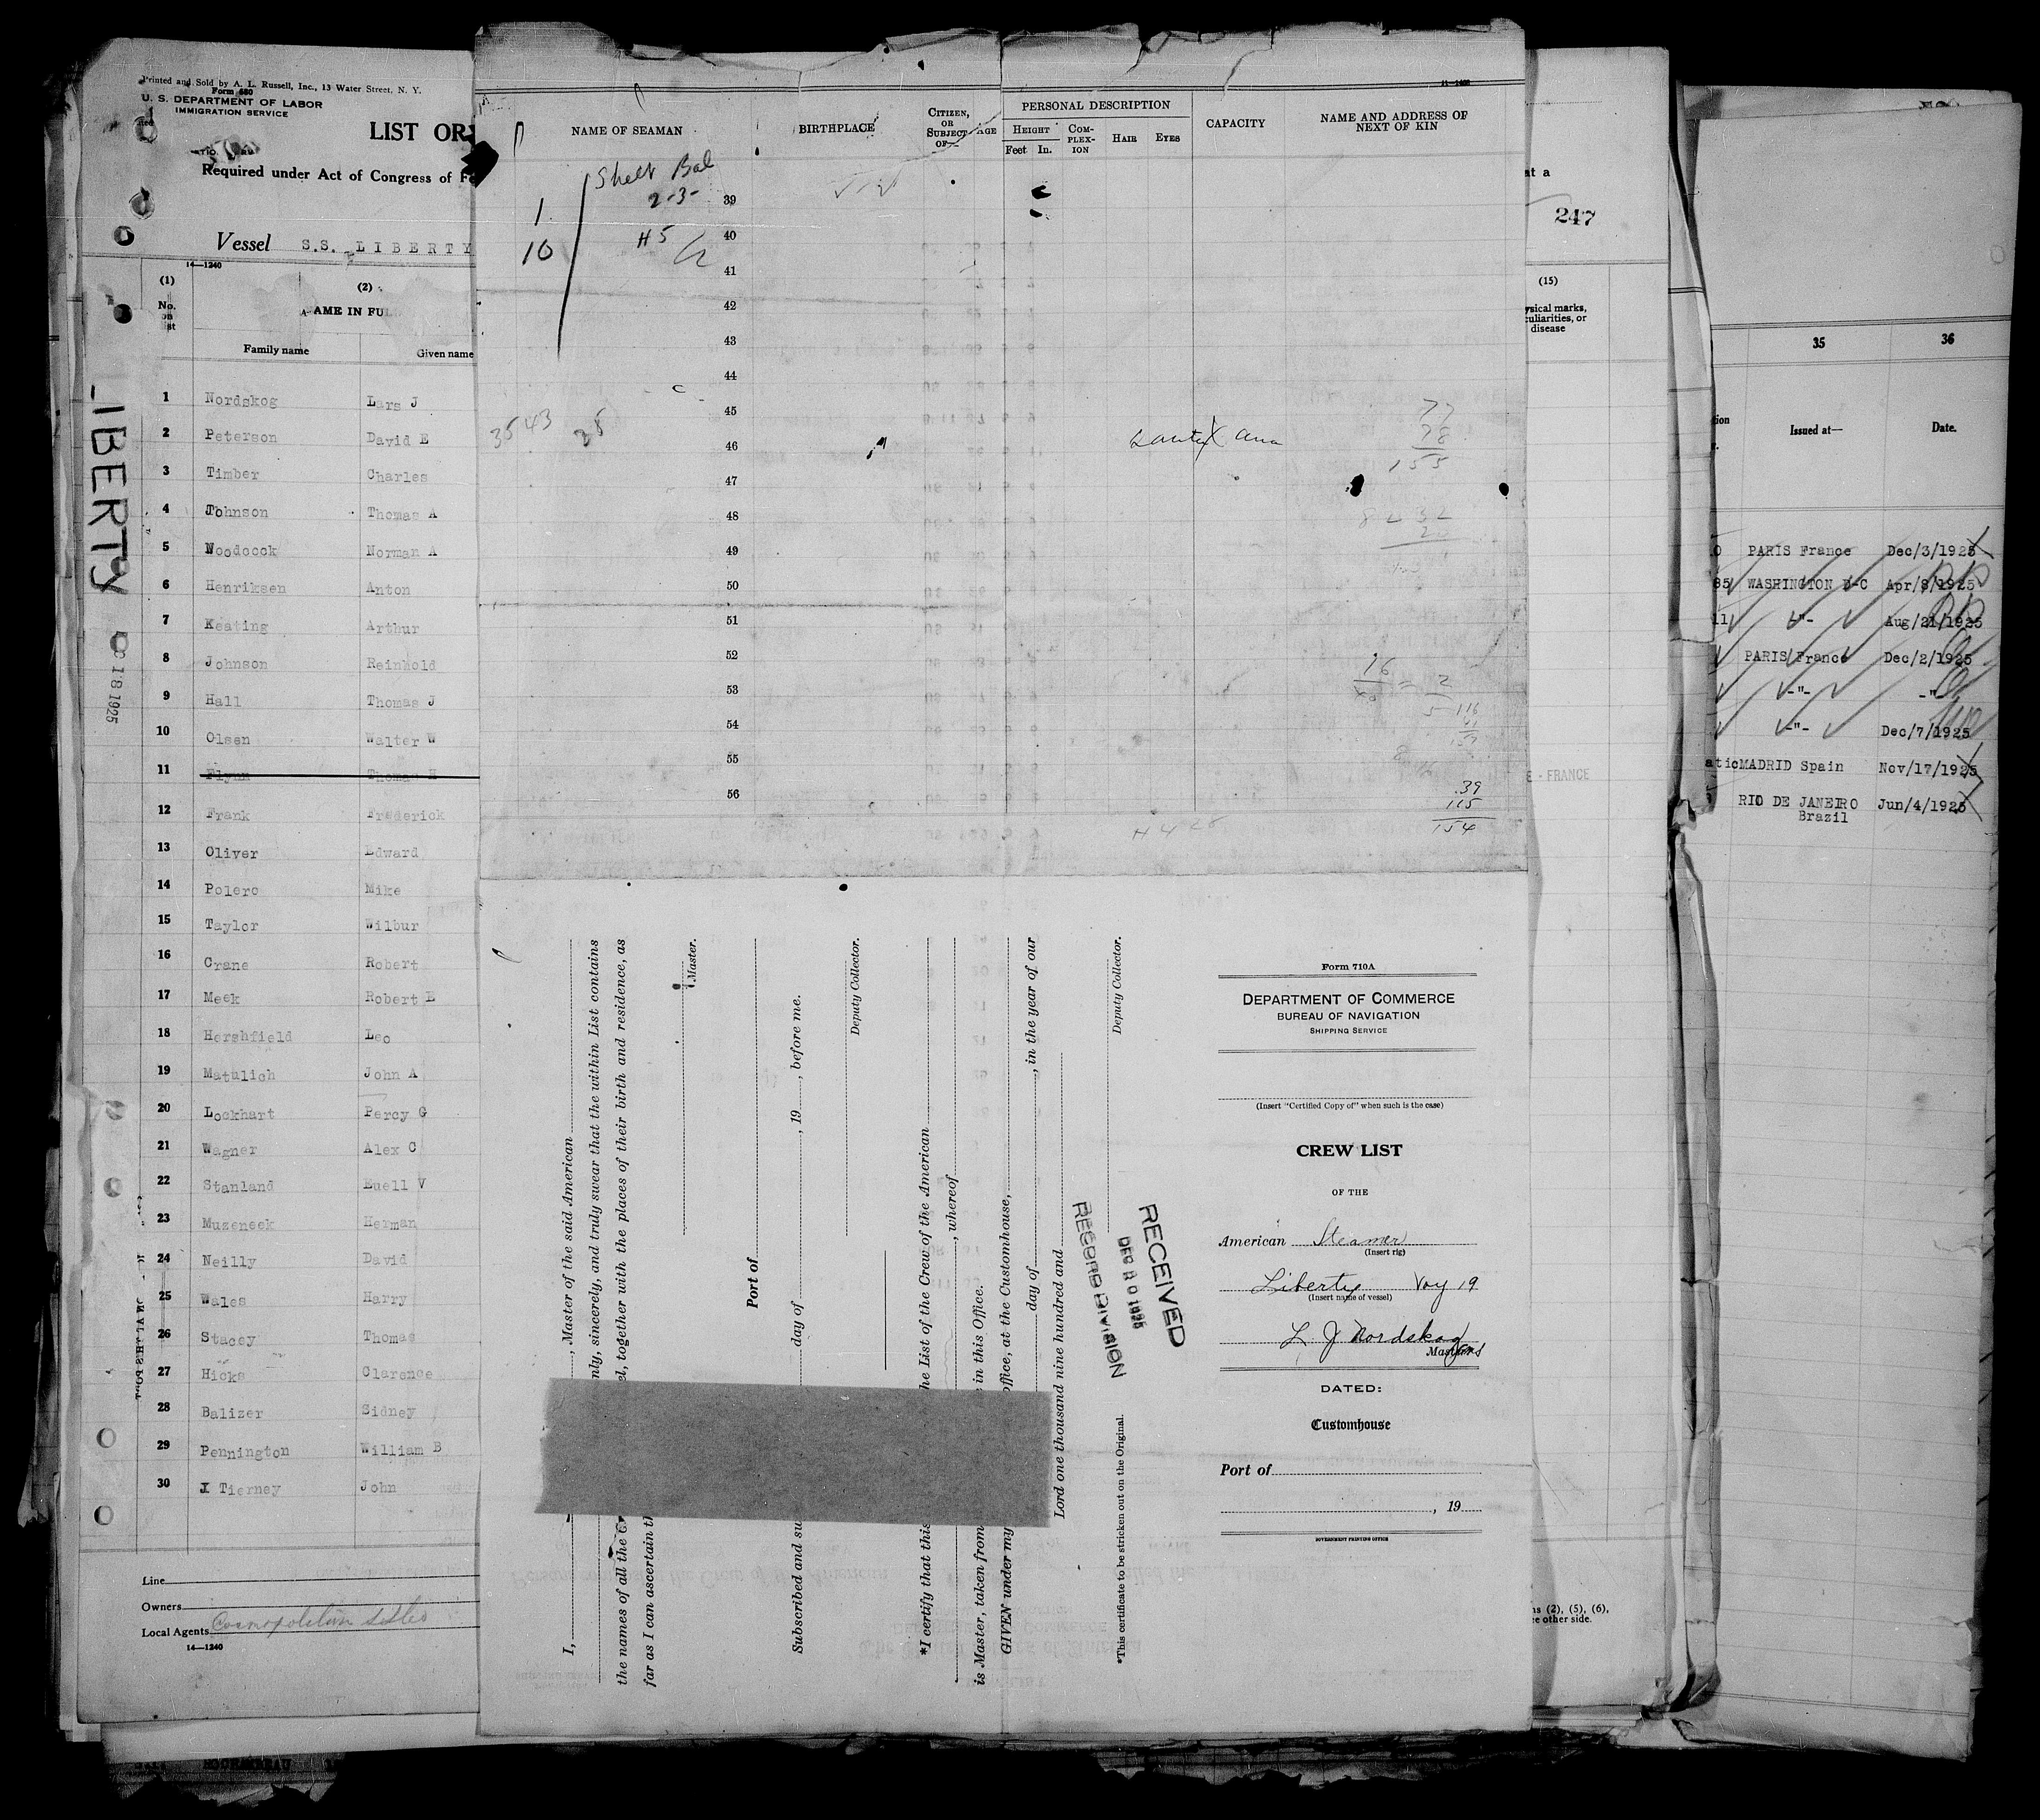 Printed and Sold by A. L. Russell, Inc., 13 Water Street, N. Y.
Form 680
U. S. DEPARTMENT OF LABOR
IMMIGRATION SERVICE
LIST OR
Required under Act of Congress of Fe
Vessel S.S. LIBERTY
14—1240
(1)
(2)
No. on list
NAME IN FUL
Family name Given name
1 Nordskog Lars J
2 Peterson David E
3 Timber Charles
4 Johnson Thomas A
5 Woodcock Norman A
6 Henriksen Anton
7 Keating Arthur
8 Johnson Reinhold
9 Hall Thomas J
10 Olsen Walter W
11 Flynn Thomas H
12 Frank Frederick
13 Oliver Edward
14 Polero Mike
15 Taylor Wilbur
16 Crane Robert
17 Meek Robert E
18 Hershfield Leo
19 Matulich John A
20 Lockhart Percy G
21 Wagner Alex C
22 Stanland Euell V
23 Muzeneek Herman
24 Neilly David
25 Wales Harry
26 Stacey Thomas
27 Hicks Clarence
28 Balizer Sidney
29 Pennington William B
30 Tierney John
Line
Owners
Local Agents Cosmopolitan
14—1240
LIBERTY
18 1925
NAME OF SEAMAN
BIRTHPLACE
CITIZEN, OR SUBJECT OF—
AGE
PERSONAL DESCRIPTION
HEIGHT
Feet In.
COM-PLEX-ION
HAIR
EYES
CAPACITY
NAME AND ADDRESS OF NEXT OF KIN
Shelt Bal
2-3-
1
10
H5
39
40
41
42
43
44
45
46
47
48
49
50
51
52
53
54
55
56
3543
28
Ana
77
78
155
16
2
5
116
39
115
154
I, , Master of the said American
nly, sincerely, and truly swear that the within List contains
the names of all the el, together with the places of their birth and residence, as
far as I can ascertain th
Master.
Port of
Subscribed and su day of , 19 , before me.
Deputy Collector.
*I certify that this he List of the Crew of the American
, whereof
is Master, taken from e in this Office.
GIVEN under my office, at the Customhouse,
day of , in the year of our
Lord one thousand nine hundred and
Deputy Collector.
*This certificate to be stricken out on the Original.
RECEIVED
DEC 20 1925
RECORD DIVISION
Form 710A
DEPARTMENT OF COMMERCE
BUREAU OF NAVIGATION
SHIPPING SERVICE
(Insert "Certified Copy of" when such is the case)
CREW LIST
OF THE
American Steamer
(Insert rig)
Liberty Voy 19
(Insert name of vessel)
L J Nordskog
Master
DATED:
Customhouse
Port of
, 19
GOVERNMENT PRINTING OFFICE
at a
247
(15)
ysical marks,
culiarities, or
disease
E - FRANCE
ns (2), (5), (6),
ee other side.
35 36
tion
Issued at— Date.
0 PARIS France Dec/3/1925
85 WASHINGTON D-C Apr/8/1925
11 -"- Aug/21/1925
PARIS France Dec/2/1925
-"- -"-
-"- Dec/7/1925
atic MADRID Spain Nov/17/1925
RIO DE JANEIRO Jun/4/1925
Brazil